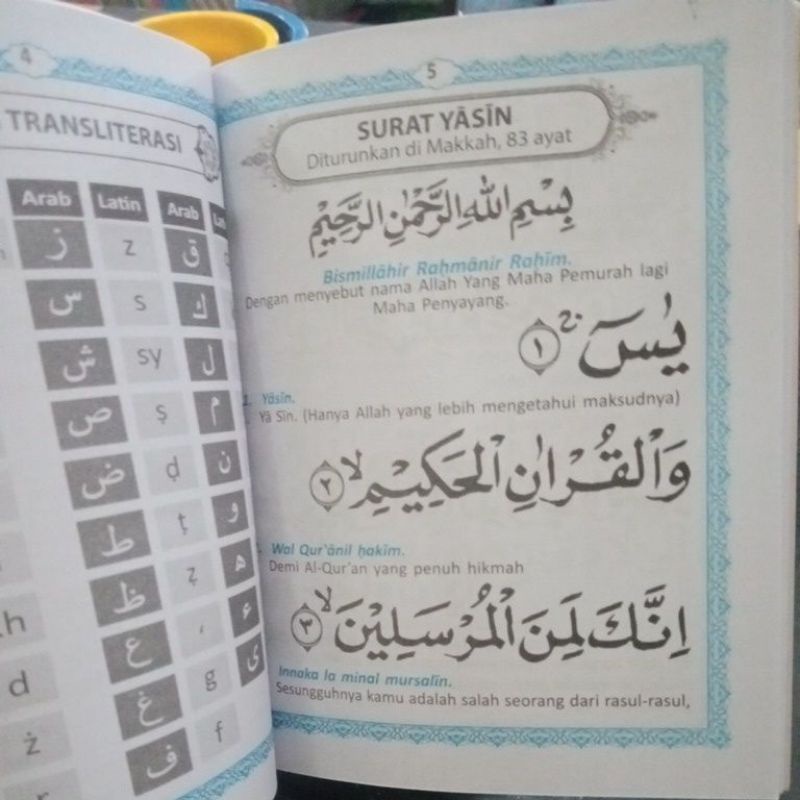 4
TRANSLITERASI
Arab Latin Arab
ز z ق
س s ك
ش sy ل
ص ṣ م
ض ḍ ن
ط ṭ و
ظ ẓ ه
ع ‘ ء
غ g ى
ف f
d
ż
5
SURAT YĀSĪN
Diturunkan di Makkah, 83 ayat
بِسْمِ اللهِ الرَّحْمٰنِ الرَّحِيْمِ
Bismillâhir Raḥmânir Raḥîm.
Dengan menyebut nama Allah Yang Maha Pemurah lagi
Maha Penyayang.
يٰسۤ ۚ ١
1. Yâsîn.
Yā Sīn. (Hanya Allah yang lebih mengetahui maksudnya)
وَالْقُرْاٰنِ الْحَكِيْمِۙ ٢
Wal Qur'ânil ḥakîm.
Demi Al-Qur'an yang penuh hikmah
اِنَّكَ لَمِنَ الْمُرْسَلِيْنَۙ ٣
Innaka la minal mursalîn.
Sesungguhnya kamu adalah salah seorang dari rasul-rasul,